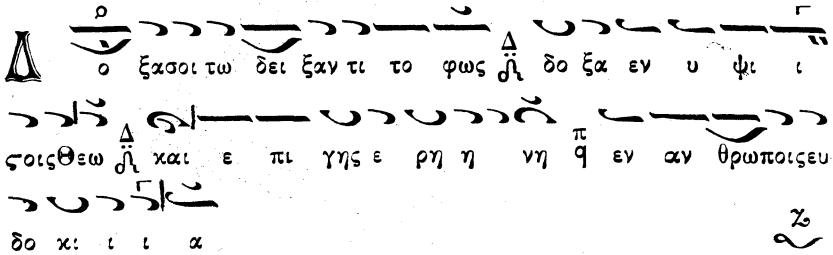 Δ ο ξα σοι τω δει ξαν τι το φως Δ δο ξα εν υ ψι ι
ςοις Θε ω Δ και ε πι γης ε ρη η νη π q εν αν θρω ποις ευ
δο κι ι ι α